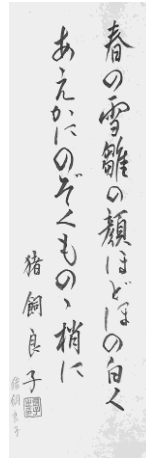 春の雪雛の顔ほどほの白く
あえかにのぞくものゝ梢に
猪飼良子